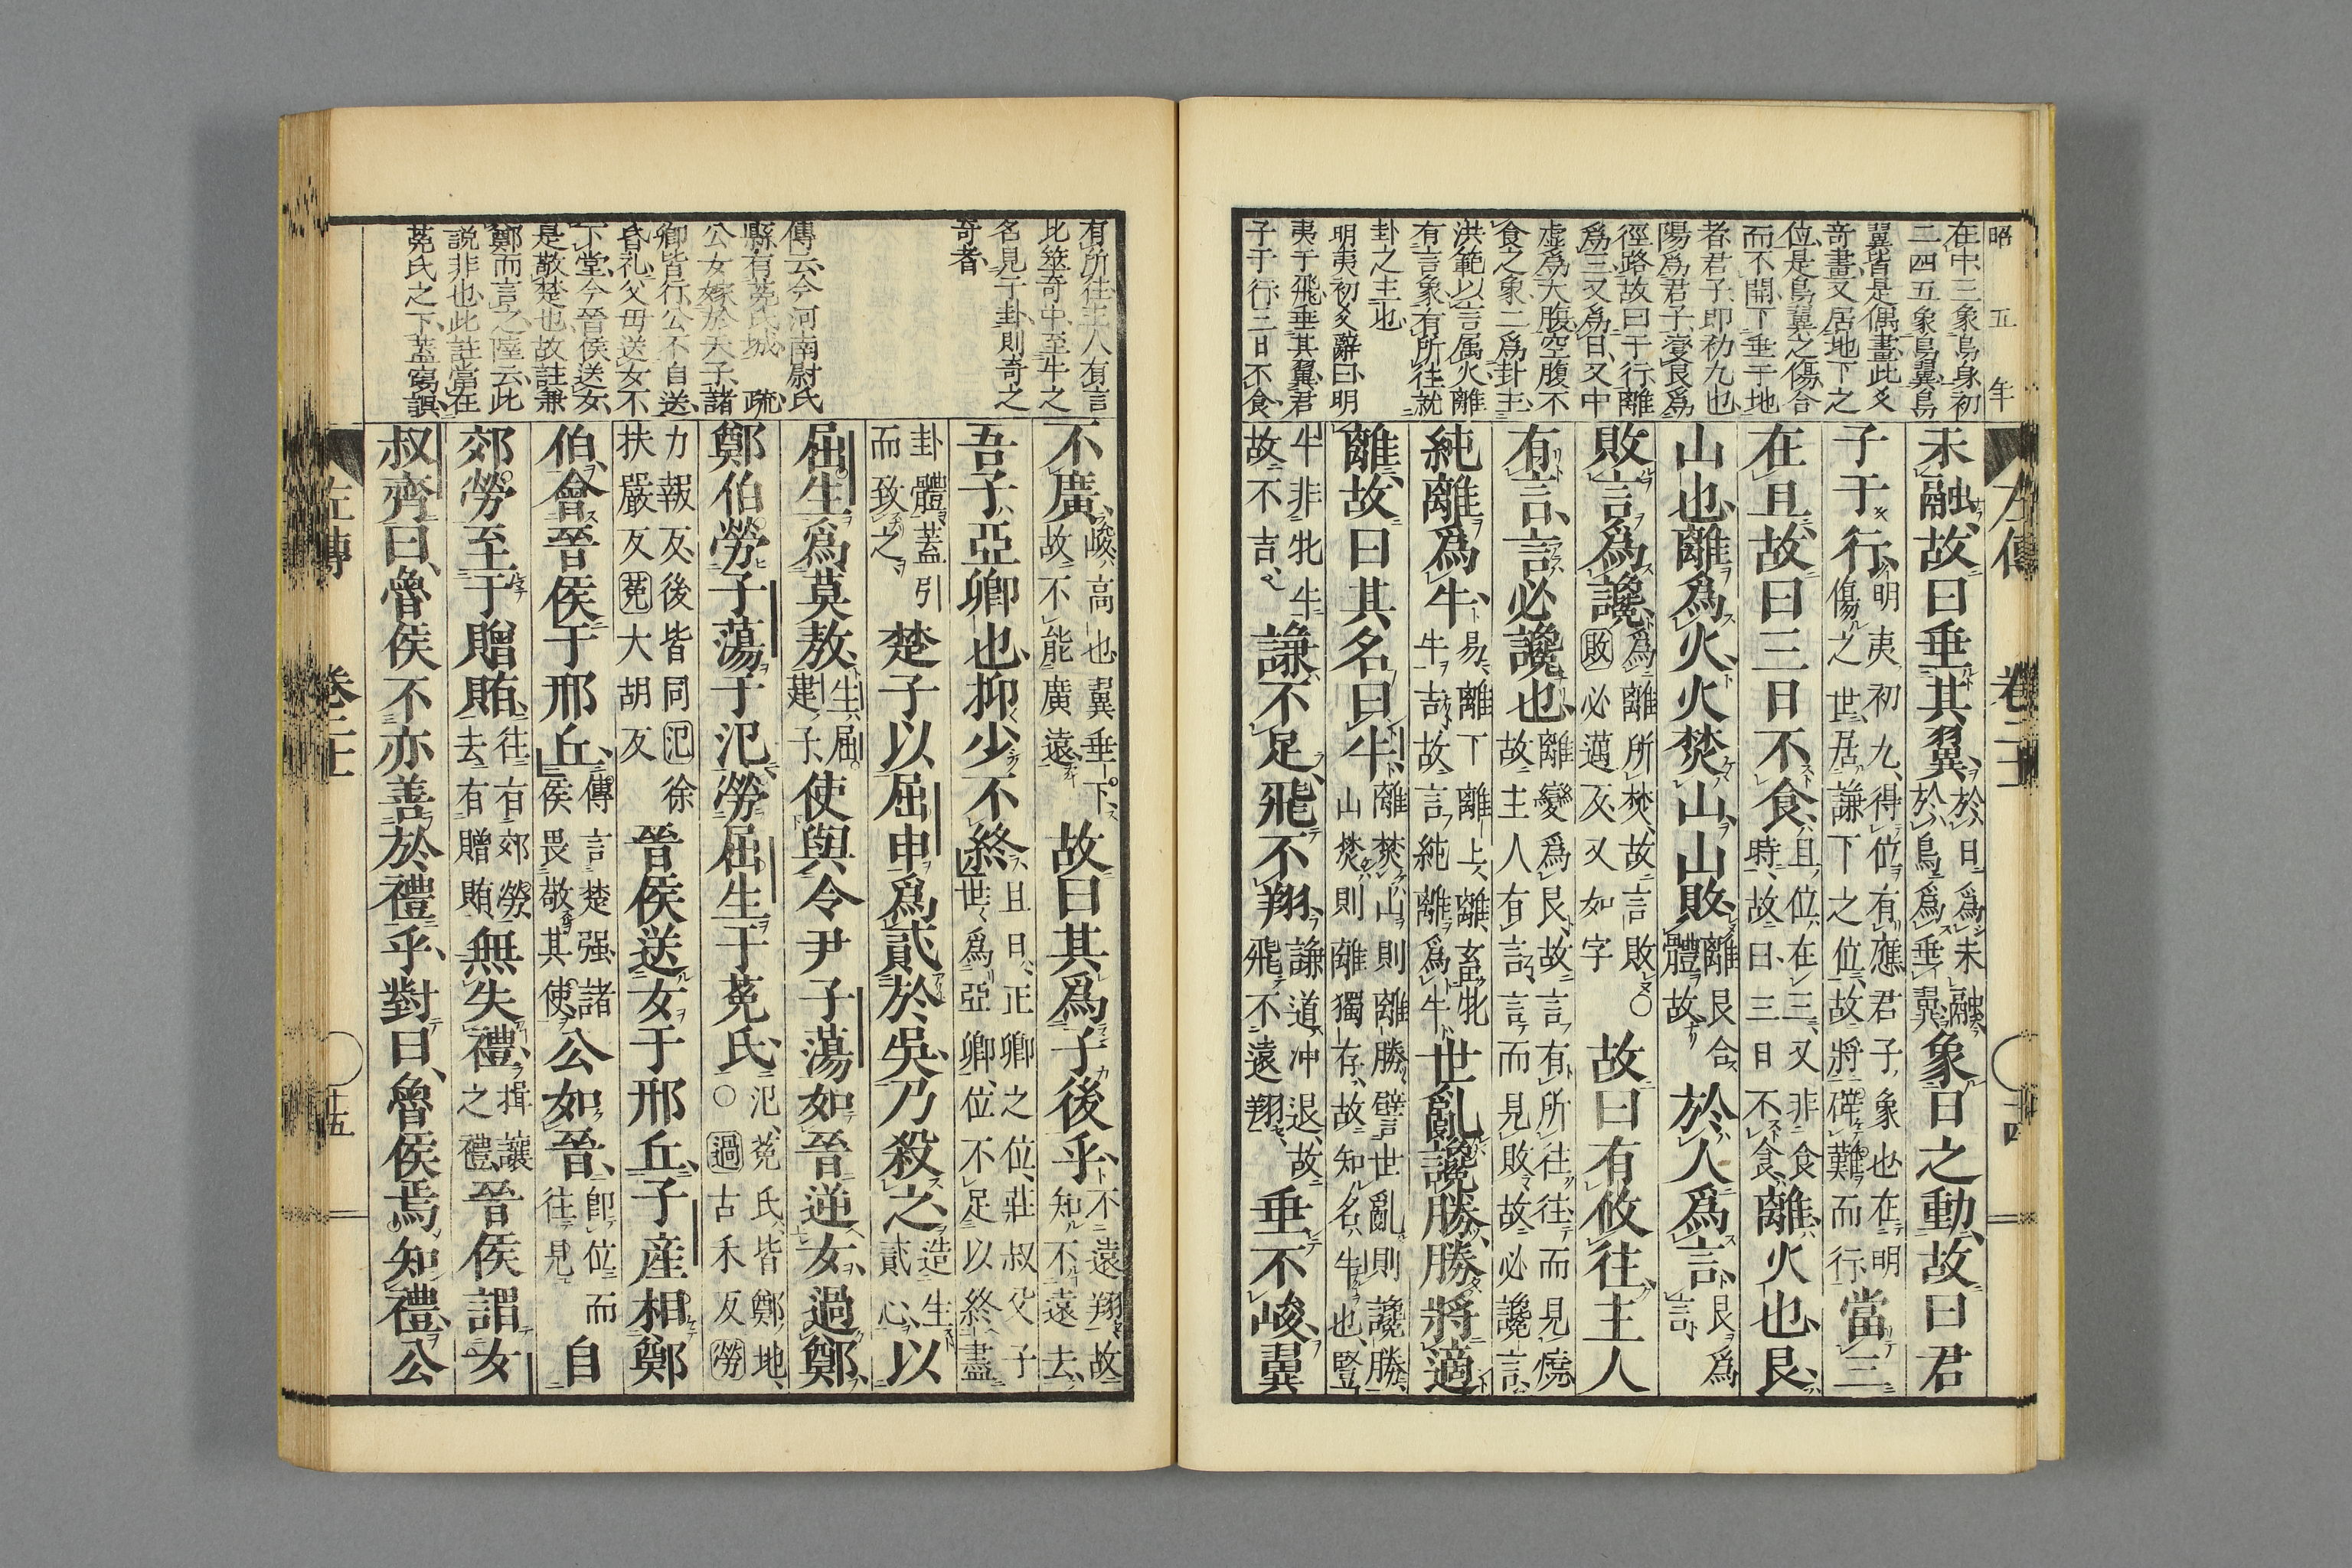 昭五年
在中三象鳥身初
二四五象鳥翼鳥
翼皆是偶畫此爻
奇畫又居地下之
位是鳥翼之傷合
而不開下垂于地
者君子即初九也
陽爲君子變艮爲
徑路故曰于行離
爲三又爲日又中
虛爲大腹空腹不
食之象二爲卦主
洪範以言属火離
有言象有所往就
卦之主也
明夷初爻辭曰明
夷于飛垂其翼君
子于行三日不食
左傳 卷二十二
未融故曰垂其翼於日爲未融於鳥爲垂翼象日之動故曰君
子于行明夷初九得位有應君子象也在明傷之世居謙下之位故將碎難而行當三
在旦故曰三日不食旦位在三又非食時故曰三日不食離火也艮
山也離爲火火焚山山敗離艮合體故於人爲言艮爲言
敗言爲讒爲離所焚故言敗○敗必邁反又如字故曰有攸往主人
有言言必讒也離變爲艮故言有所往往而見燒故主人有言言而見敗故必讒言
純離爲牛易離下離上離畜牝牛吉故言純離爲牛世亂讒勝勝將適
離故曰其名曰牛離焚山則離勝譬世亂則讒勝山焚則離獨存故知名牛也豎
牛非牝牛故不吉謙不足飛不翔謙道沖退故飛不遠翔垂不峻翼
有所往主人有言
此筮奇中至牛之
名見于卦則奇之
奇者
傳云今河南尉氏
縣有菟氏城 疏
公女嫁於天子諸
卿皆行公不自送
昏礼父母送女不
下堂今晉侯送女
是敬楚也故註兼
鄭而言之陸云此
説非也此註當在
菟氏之下蓋寫誤
不廣峻高也翼垂下故不能廣遠故曰其爲子後乎不遠翔故知不遠去
吾子亞卿也抑少不終且日正卿之位莊叔父子世爲亞卿位不足以終盡
卦體蓋引而致之楚子以屈申爲貳於吳乃殺之造生貳心以
屈生爲莫敖生屈建子使與令尹子蕩如晉逆女過鄭
鄭伯勞子蕩于氾勞屈生于菟氏氾菟氏皆鄭地○過古禾反勞
力報反後皆同氾徐扶嚴反菟大胡反晉侯送女于邢丘子産相鄭
伯會晉侯于邢丘傳言楚强諸侯畏敬其使公如晉即位而往見自
郊勞至于贈賄往有郊勞去有贈賄無失禮揖讓之禮晉侯謂女
叔齊曰魯侯不亦善於禮乎對曰魯侯焉知禮公
左傳 卷二十二 十五